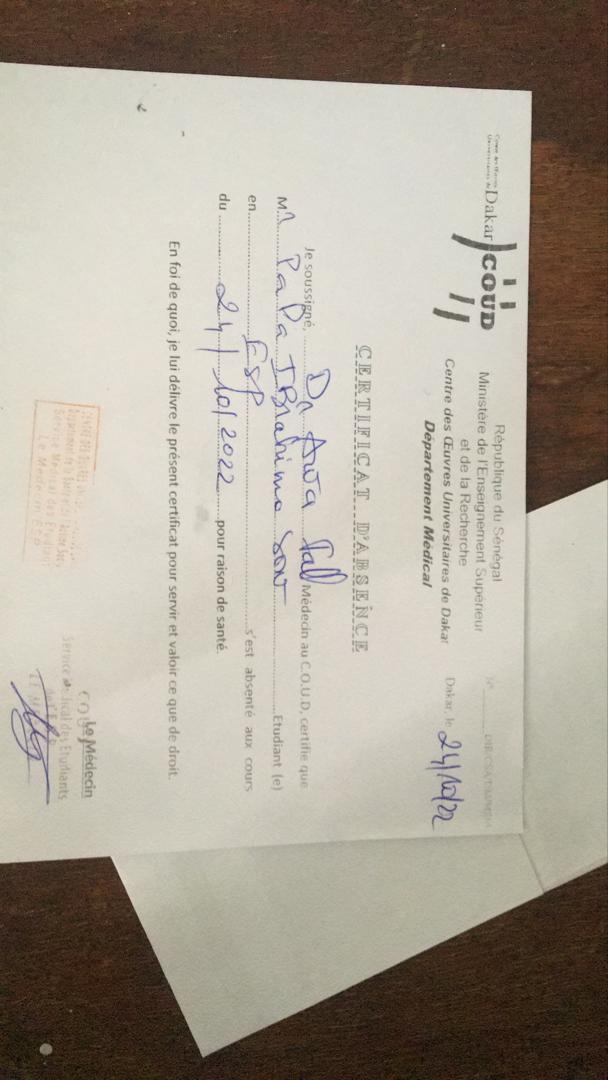 Centre des Œuvres
Universitaires de Dakar COUD
République du Sénégal
Ministère de l'Enseignement Supérieur
et de la Recherche
Centre des Œuvres Universitaires de Dakar
Département Médical
N°
Dakar, le 24/10/22
CERTIFICAT D'ABSENCE
Je soussigné, Dr Awa Fall Médecin au C.O.U.D, certifie que
Mr PaPa IBrahima Sow Etudiant (e)
en ESP s'est absenté aux cours
du 24/10/2022 pour raison de santé.
En foi de quoi, je lui délivre le présent certificat pour servir et valoir ce que de droit.
CENTRE DES ŒUVRES
Département de la Santé et de l'Action
Service Médical des Etudiant
Le Médecin ESP
Le Médecin
COU
Service Médical des Etudiants